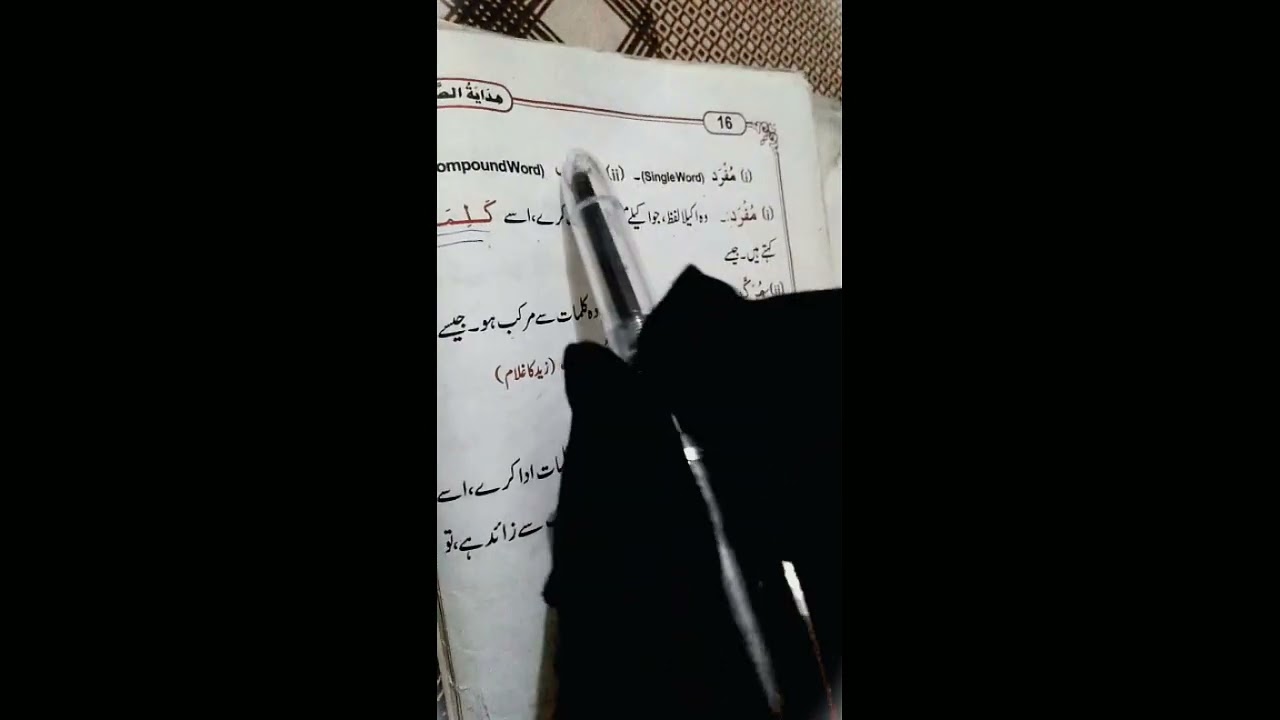 16
هدَايَةُ
(i) مُفْرَد (Single Word)۔ (ii) ompound Word)
(i) مُفْرَد:۔ وہ اکیلا لفظ، جو اکیلے کرے، اسے كَلِمَ
کہتے ہیں۔ جیسے
(ii)
کلمات سے مرکب ہو۔ جیسے
(زید کا غلام)
ادا کرے، اسے
سے زائد ہے، تو